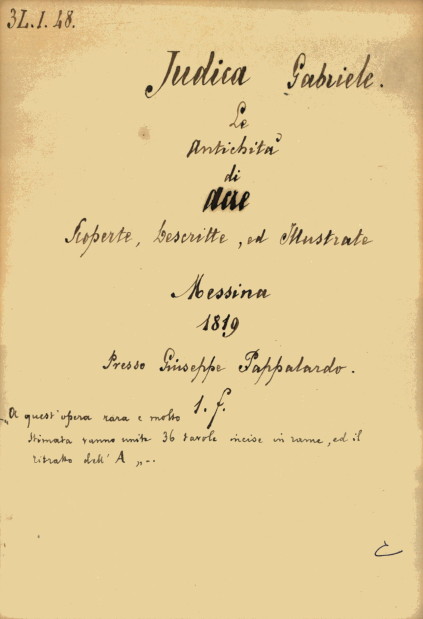 3L.I.48.
Judica Gabriele.
Le
Antichità
di
Acre
Scoperte, Descritte, ed Illustrate
Messina
1819
Presso Giuseppe Pappalardo.
1. f.
„A quest'opera rara e molto
stimata vanno unite 36 tavole incise in rame, ed il
ritratto dell'A„..